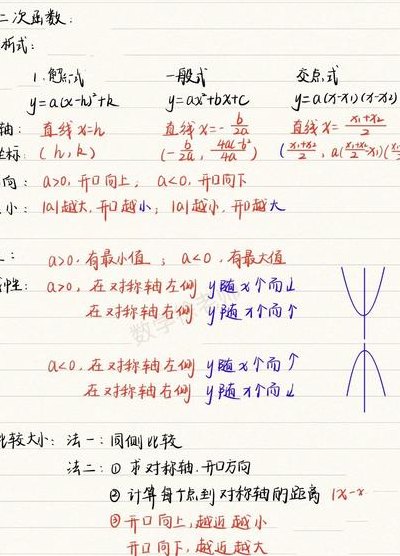 二次函数:
析式:
1. 解析式 一般式 交点式
y=a(x-h)²+k y=ax²+bx+c y=a(x-x₁)(x-x₂)
轴: 直线x=h 直线x=-b/2a 直线x=(x₁+x₂)/2
坐标: (h,k) (-b/2a, (4ac-b²)/4a) ((x₁+x₂)/2, a((x₁+x₂)/2-x₁)(
向: a>0,开口向上; a<0,开口向下
小: |a|越大,开口越小; |a|越小,开口越大
: a>0,有最小值; a<0,有最大值
性: a>0, 在对称轴左侧 y随x↑而↓
在对称轴右侧 y随x↑而↑
a<0, 在对称轴左侧 y随x↑而↑
在对称轴右侧 y随x↑而↓
比较大小: 法一: 同侧比较
法二: ① 求对称轴,开口方向
② 计算每个点到对称轴的距离 |x-x
③ 开口向上,越近越小
开口向下,越近越大